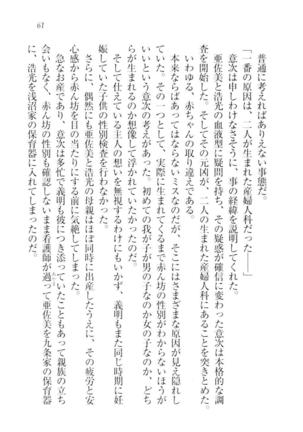 61
普通に考えればありえない事態だ。
「一番の原因は、二人が生まれた産婦人科だった——」
意次は申しわけなさそうに、事の経緯を説明してくれた。
亜佐美と浩光の血液型に疑問を持ち、その疑惑が確信に変わった意次は本格的な調
査を開始した。そしてその元凶が、二人の生まれた産婦人科にあることを突きとめた。
いわゆる、赤ちゃんの取り違えである。
本来ならばあってはならないミスなのだが、そこにはさまざまな原因が見え隠れし
ていた。その一つとして、実際に生まれてくるまで赤ん坊の性別がわからないほうが
いいという意次の考えがあった。初めての我が子が男の子なのか女の子なのか、どち
らが生まれるのか想像して浮かれていたかったのだ。
そして仕えている主人の想いを無視するわけにもいかず、義明もまた同じ時期に妊
娠していた子供の性別検査を行わなかった。
さらに、偶然にも亜佐美と浩光の母親はほぼ同時に出産したうえに、その疲労と安
心感から赤ん坊を目の当たりにする前に気絶してしまった。
急なお産であり、意次は多忙で義明も彼につき添っていたこともあって親族の立ち
会いもなく、赤ん坊の性別も確認しないまま看護師が過って亜佐美を九条家の保育器
に、浩光を浅沼家の保育器に入れてしまったのだ。